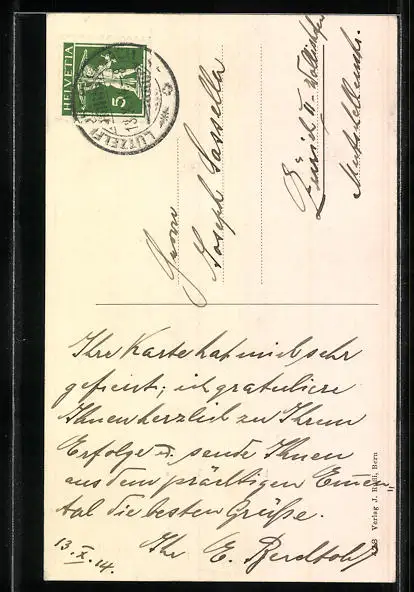 HELVETIA
5
LÜTZELFL
Herrn
Joseph Casnella
Zürich II - Wollishofen
Mutschellenstr.
Ihre Karte hat mich sehr
gefreut; ich gratuliere
Ihnen herzlich zu Ihrem
Erfolge u. sende Ihnen
aus dem prächtigen Emmen
tal die besten Grüße.
13. X. 14. Ihr E. Berchtold
Verlag J. Bern